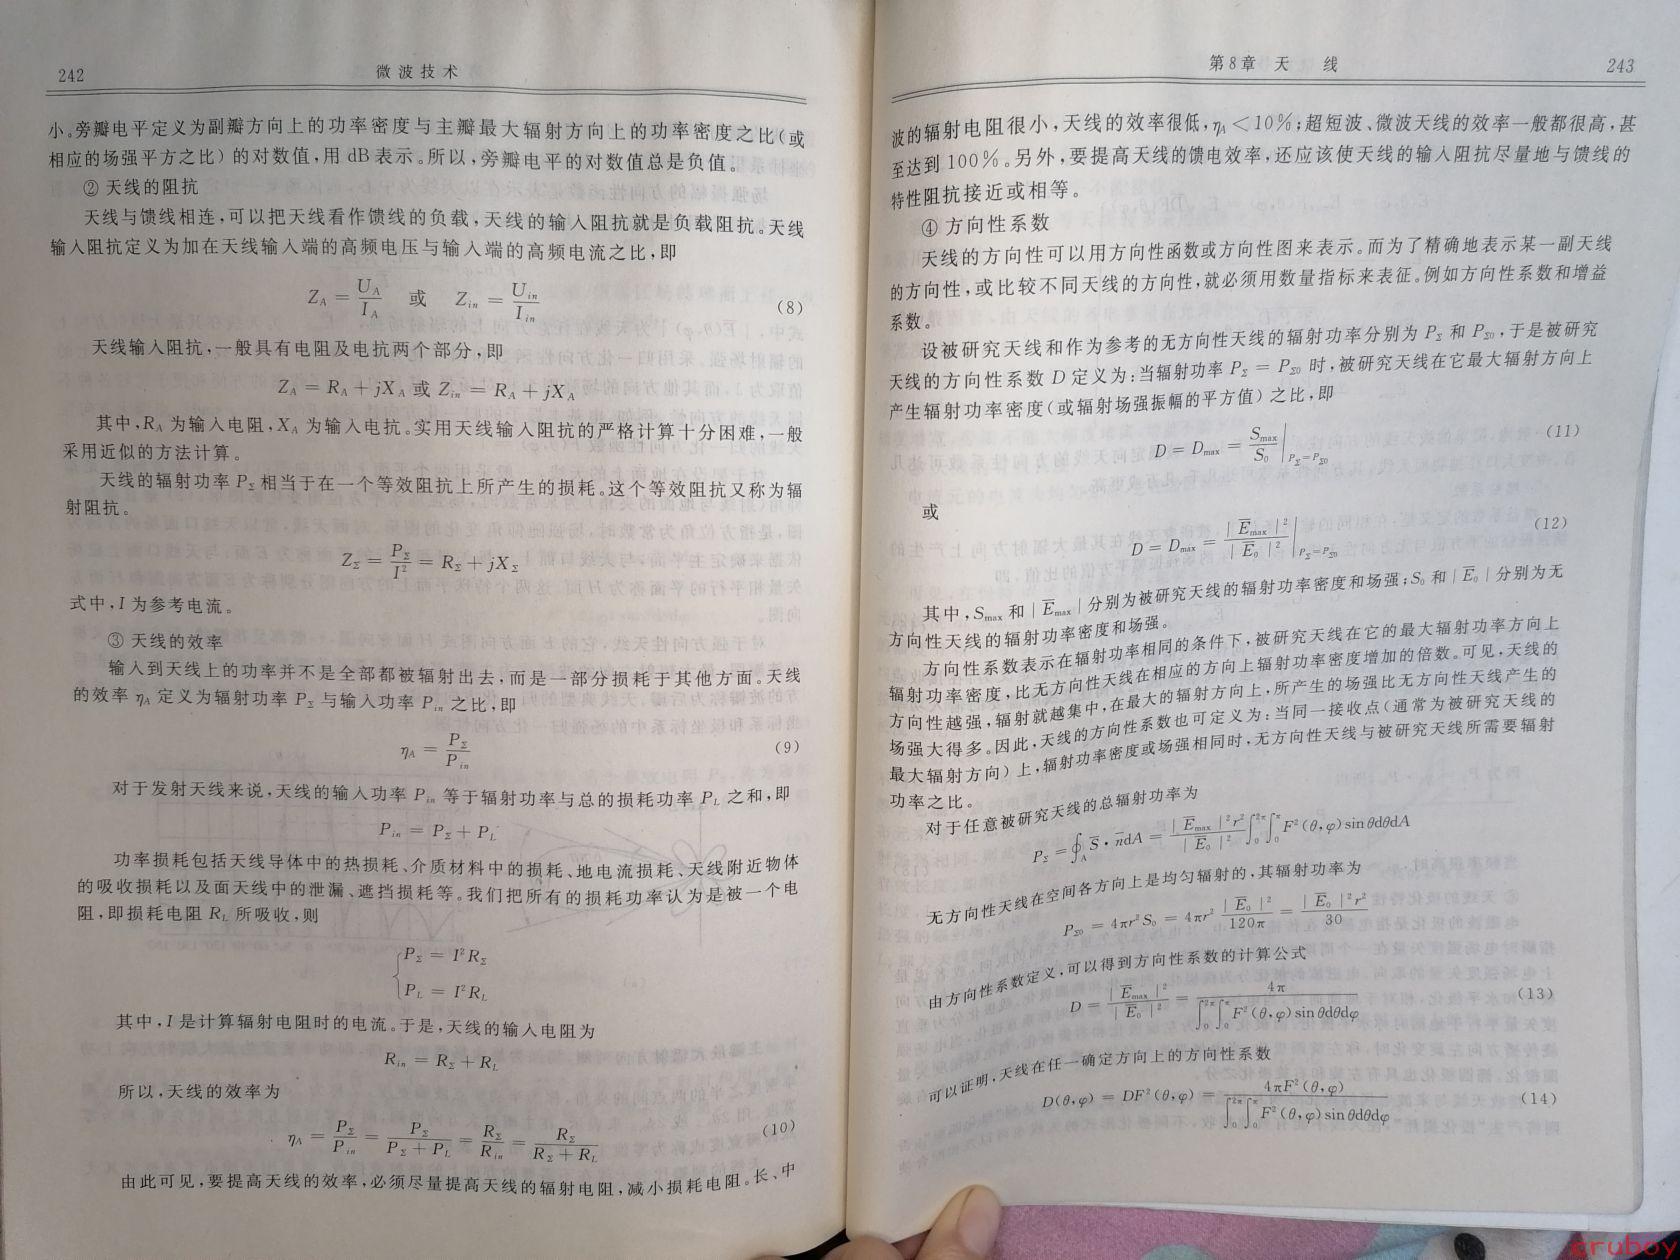 242
微波技术
小。旁瓣电平定义为副瓣方向上的功率密度与主瓣最大辐射方向上的功率密度之比(或
相应的场强平方之比)的对数值,用 dB 表示。所以,旁瓣电平的对数值总是负值。
② 天线的阻抗
天线与馈线相连,可以把天线看作馈线的负载,天线的输入阻抗就是负载阻抗。天线
输入阻抗定义为加在天线输入端的高频电压与输入端的高频电流之比,即
Z_A = U_A / I_A 或 Z_in = U_in / I_in (8)
天线输入阻抗,一般具有电阻及电抗两个部分,即
Z_A = R_A + jX_A 或 Z_in = R_A + jX_A
其中,R_A 为输入电阻,X_A 为输入电抗。实用天线输入阻抗的严格计算十分困难,一般
采用近似的方法计算。
天线的辐射功率 P_Σ 相当于在一个等效阻抗上所产生的损耗。这个等效阻抗又称为辐
射阻抗。
Z_Σ = P_Σ / I² = R_Σ + jX_Σ
式中,I 为参考电流。
③ 天线的效率
输入到天线上的功率并不是全部都被辐射出去,而是一部分损耗于其他方面。天线
的效率 η_A 定义为辐射功率 P_Σ 与输入功率 P_in 之比,即
η_A = P_Σ / P_in (9)
对于发射天线来说,天线的输入功率 P_in 等于辐射功率与总的损耗功率 P_L 之和,即
P_in = P_Σ + P_L
功率损耗包括天线导体中的热损耗、介质材料中的损耗、地电流损耗、天线附近物体
的吸收损耗以及面天线中的泄漏、遮挡损耗等。我们把所有的损耗功率认为是被一个电
阻,即损耗电阻 R_L 所吸收,则
{ P_Σ = I²R_Σ
P_L = I²R_L
其中,I 是计算辐射电阻时的电流。于是,天线的输入电阻为
R_in = R_Σ + R_L
所以,天线的效率为
η_A = P_Σ / P_in = P_Σ / (P_Σ + P_L) = R_Σ / R_in = R_Σ / (R_Σ + R_L) (10)
由此可见,要提高天线的效率,必须尽量提高天线的辐射电阻,减小损耗电阻。长、中
第8章 天 线
243
波的辐射电阻很小,天线的效率很低,η_A <10%;超短波、微波天线的效率一般都很高,甚
至达到100%。另外,要提高天线的馈电效率,还应该使天线的输入阻抗尽量地与馈线的
特性阻抗接近或相等。
④ 方向性系数
天线的方向性可以用方向性函数或方向性图来表示。而为了精确地表示某一副天线
的方向性,或比较不同天线的方向性,就必须用数量指标来表征。例如方向性系数和增益
系数。
设被研究天线和作为参考的无方向性天线的辐射功率分别为 P_Σ 和 P_Σ0,于是被研究
天线的方向性系数 D 定义为:当辐射功率 P_Σ = P_Σ0 时,被研究天线在它最大辐射方向上
产生辐射功率密度(或辐射场强振幅的平方值)之比,即
D = D_max = S_max / S_0 |_{P_Σ=P_Σ0} (11)
或
D = D_max = |E̅_max|² / |E̅_0|² |_{P_Σ=P_Σ0} (12)
其中,S_max 和 |E̅_max| 分别为被研究天线的辐射功率密度和场强;S_0 和 |E̅_0| 分别为无
方向性天线的辐射功率密度和场强。
方向性系数表示在辐射功率相同的条件下,被研究天线在它的最大辐射功率方向上
辐射功率密度,比无方向性天线在相应的方向上辐射功率密度增加的倍数。可见,天线的
方向性越强,辐射就越集中,在最大的辐射方向上,所产生的场强比无方向性天线产生的
场强大得多。因此,天线的方向性系数也可定义为:当同一接收点(通常为被研究天线的
最大辐射方向)上,辐射功率密度或场强相同时,无方向性天线与被研究天线所需要辐射
功率之比。
对于任意被研究天线的总辐射功率为
P_Σ = ∮_A S̅·n̅dA = |E̅_max|²r² / |E̅_0|² ∫_0^{2π}∫_0^π F²(θ,φ)sinθdθdA
无方向性天线在空间各方向上是均匀辐射的,其辐射功率为
P_Σ0 = 4πr²S_0 = 4πr² |E̅_0|² / 120π = |E̅_0|²r² / 30
由方向性系数定义,可以得到方向性系数的计算公式
D = |E̅_max|² / |E̅_0|² = 4π / ∫_0^{2π}∫_0^π F²(θ,φ)sinθdθdφ (13)
可以证明,天线在任一确定方向上的方向性系数
D(θ,φ) = DF²(θ,φ) = 4πF²(θ,φ) / ∫_0^{2π}∫_0^π F²(θ,φ)sinθdθdφ (14)
gruboy